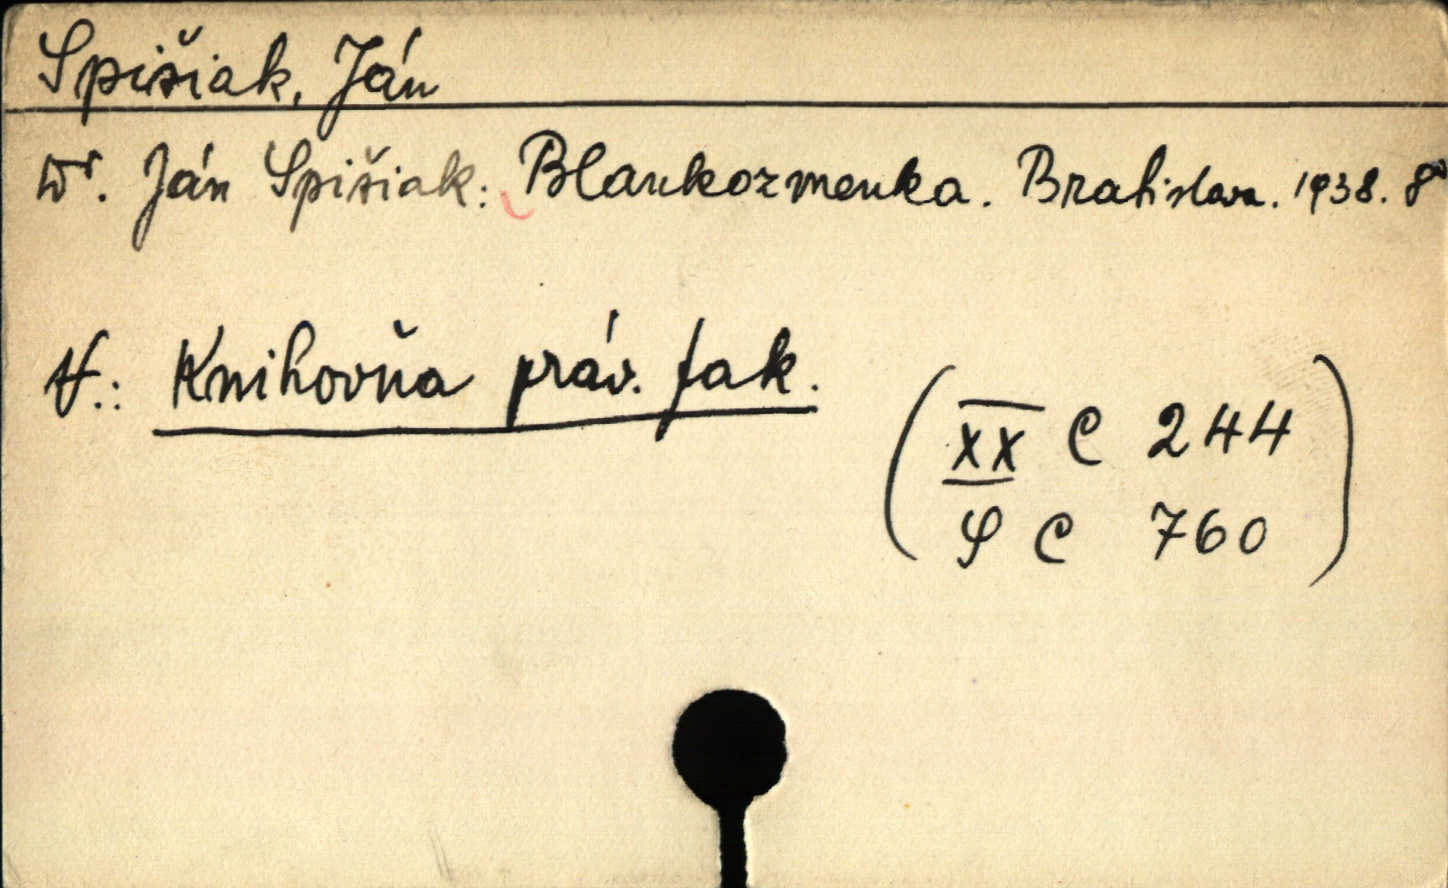 Spišiak, Ján
Dr. Ján Spišiak: Blankozmenka. Bratislava. 1938. 8°
Knihovňa práv. fak.
(XX C 244
C 760)